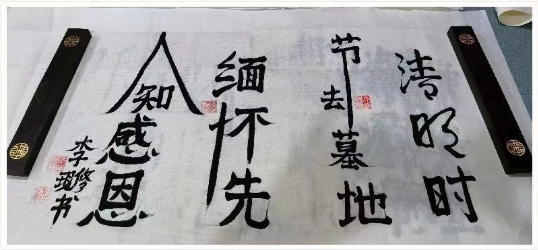 清明时
节去墓地
缅怀先
人知感恩
李修书